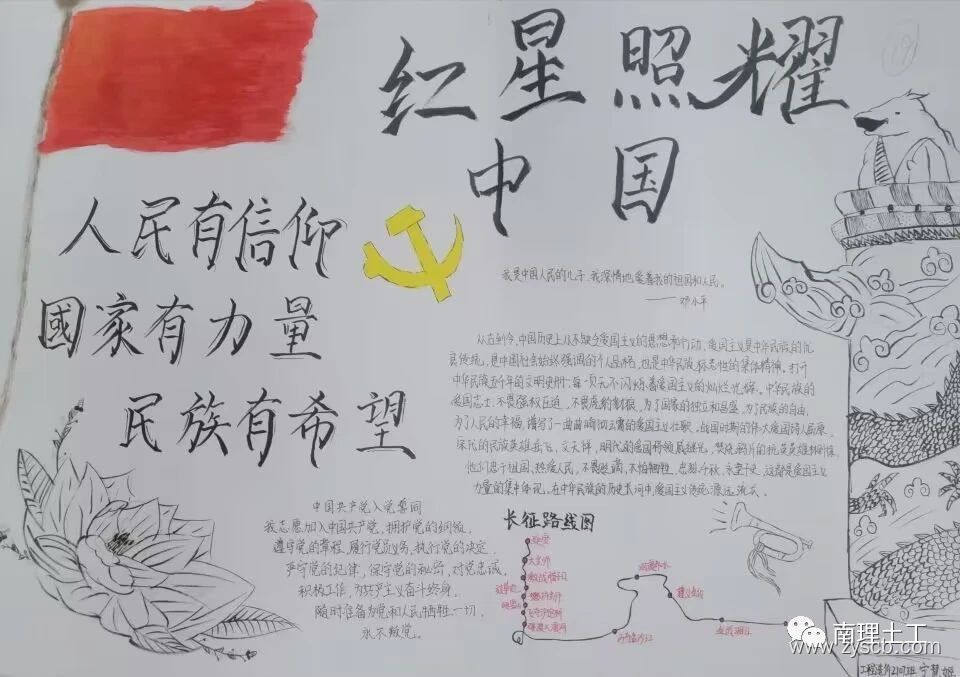 红星照耀
中国
人民有信仰
國家有力量
民族有希望
我是中国人民的儿子,我深情地爱着我的祖国和人民。
——邓小平
从古到今,中国历史上从不缺乏爱国主义的思想和行动,爱国主义是中华民族的优
良传统,是中国社会始终强调的个人品格,也是中华民族标志性的集体精神。打开
中华民族五千年的文明史册,每一页无不闪烁着爱国主义的灿烂光辉。中华民族的
爱国志士,不畏强权压迫,不畏虎豹豺狼,为了国家的独立和昌盛,为了民族的自由,
为了人民的幸福,谱写了一曲曲响彻云霄的爱国主义壮歌。战国时期的伟大爱国诗人屈原,
宋代的民族英雄岳飞、文天祥,明代的爱国将领戚继光,焚烧鸦片的抗英英雄林则徐,
他们忠于祖国,热爱人民,不畏
不怕牺牲,忠烈千秋,永垂千史,这都是爱国主义
力量的集中体现。在中华民族的历史长河中,爱国主义传统源远流长。
中国共产党入党誓词
我志愿加入中国共产党,拥护党的纲领,
遵守党的章程,履行党员义务,执行党的决定,
严守党的纪律,保守党的秘密,对党忠诚,
积极工作,为共产主义奋斗终身,
随时准备为党和人民牺牲一切,
永不叛党。
长征路线图
延安
过草地
遵义会议
血战湘江
南理土工
www.zyscb.com